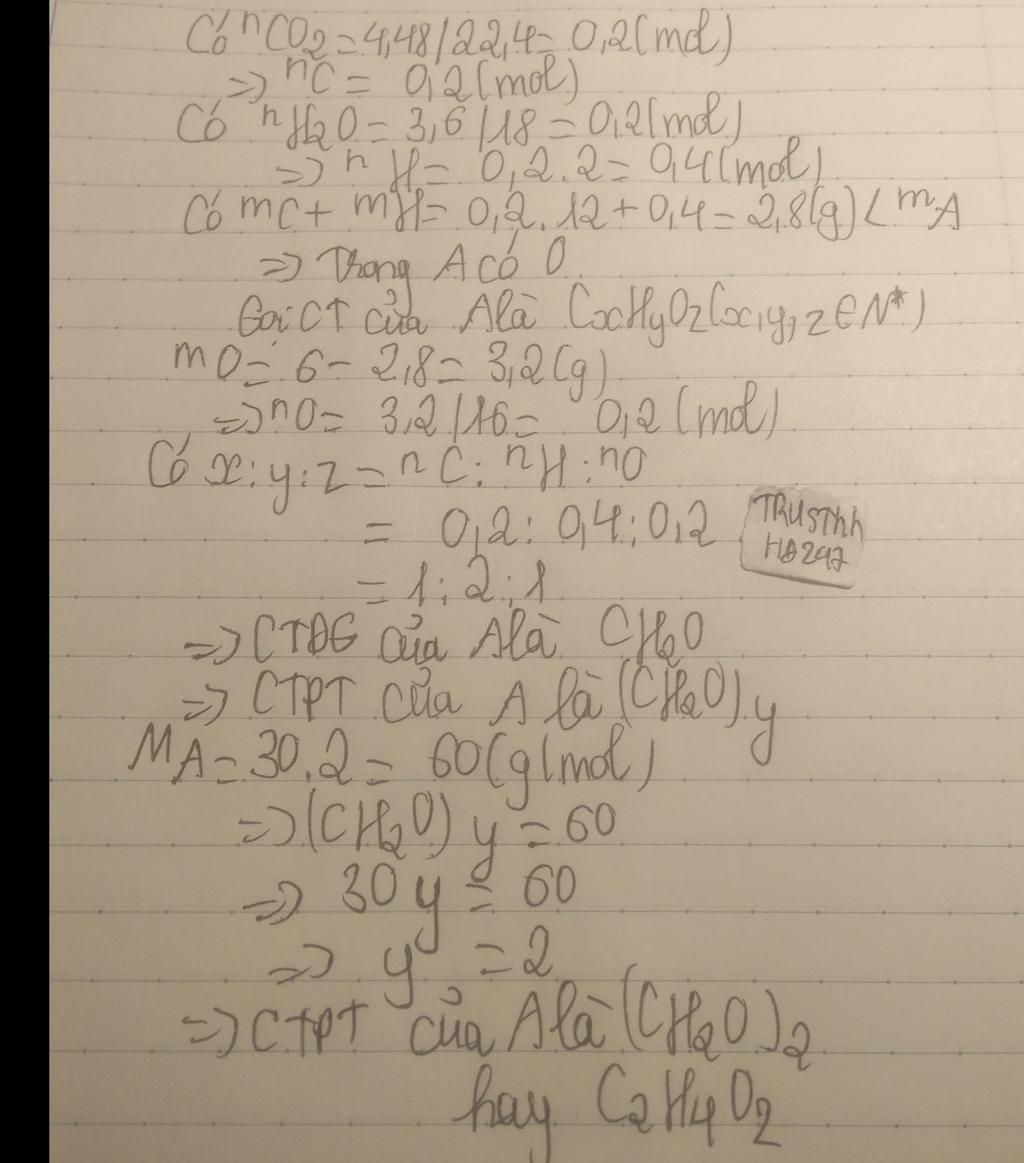 Có nCO2=4,48/22,4=0,2(mol)
=> nC = 0,2(mol)
Có nH2O=3,6/18=0,2(mol)
=> nH= 0,2.2=0,4(mol)
Có mC+ mH= 0,2.12+0,4=2,8(g)<mA
=> Trong A có O
Gọi CT của A là CxHyOz(x,y,z∈N*)
mO= 6-2,8=3,2(g)
=> nO= 3,2/16= 0,2(mol)
Có x:y:z=nC:nH:nO
= 0,2:0,4:0,2
TRUSThh
HA247
=1:2:1
=> CTĐG của A là CH2O
=> CTPT của A là (CH2O)y
MA=30.2=60(g/mol)
=> (CH2O)y=60
=> 30y=60
=> y=2
=> CTPT của A là (CH2O)2
hay C2H4O2